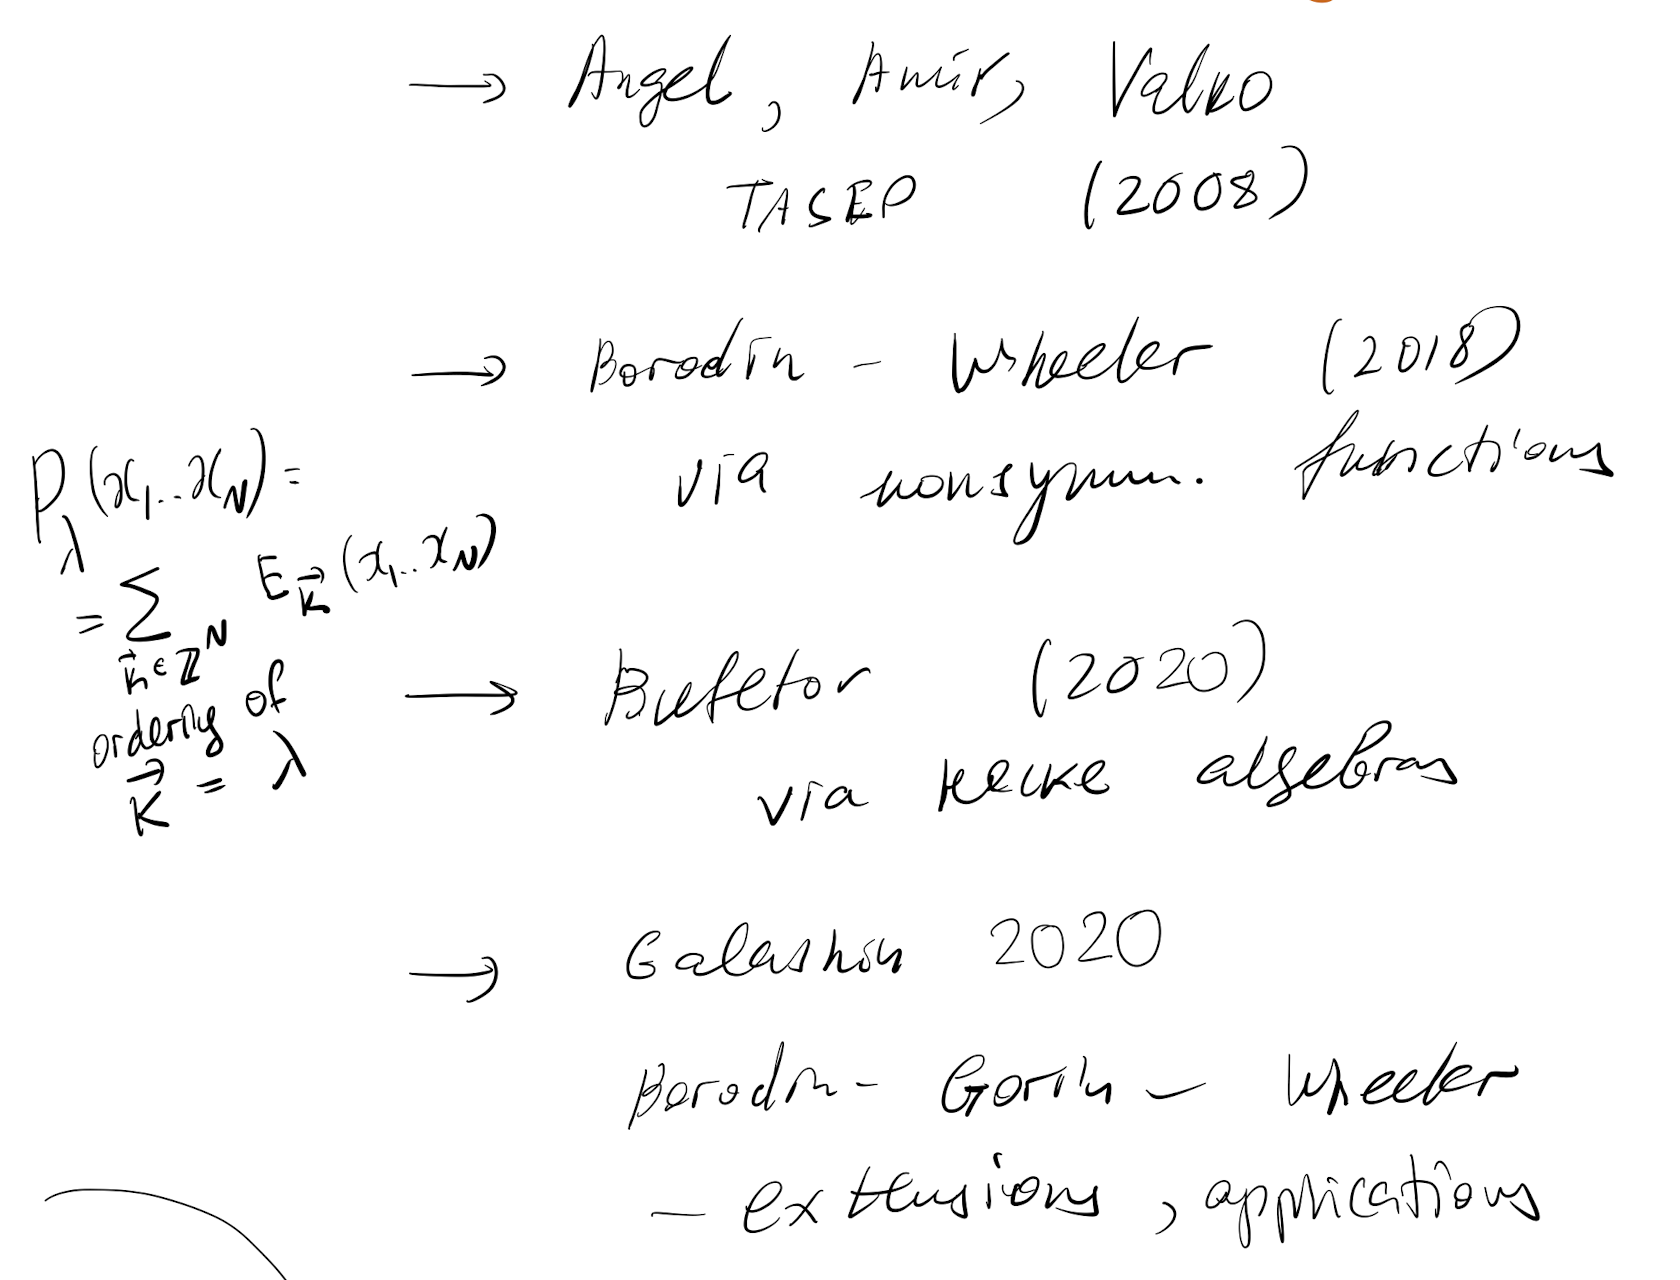 → Angel, Amir, Valko
TASEP (2008)
→ Borodin - Wheeler (2018)
via nonsymm. functions
P_λ (x_1..x_N) =
= ∑_{k⃗ ∈ ℤ^N} E_{k⃗} (x_1..x_N)
ordering of
k⃗ = λ
→ Bufetov (2020)
via Hecke algebras
→ Galashin 2020
Borodin - Gorin - Wheeler
- extensions, applications